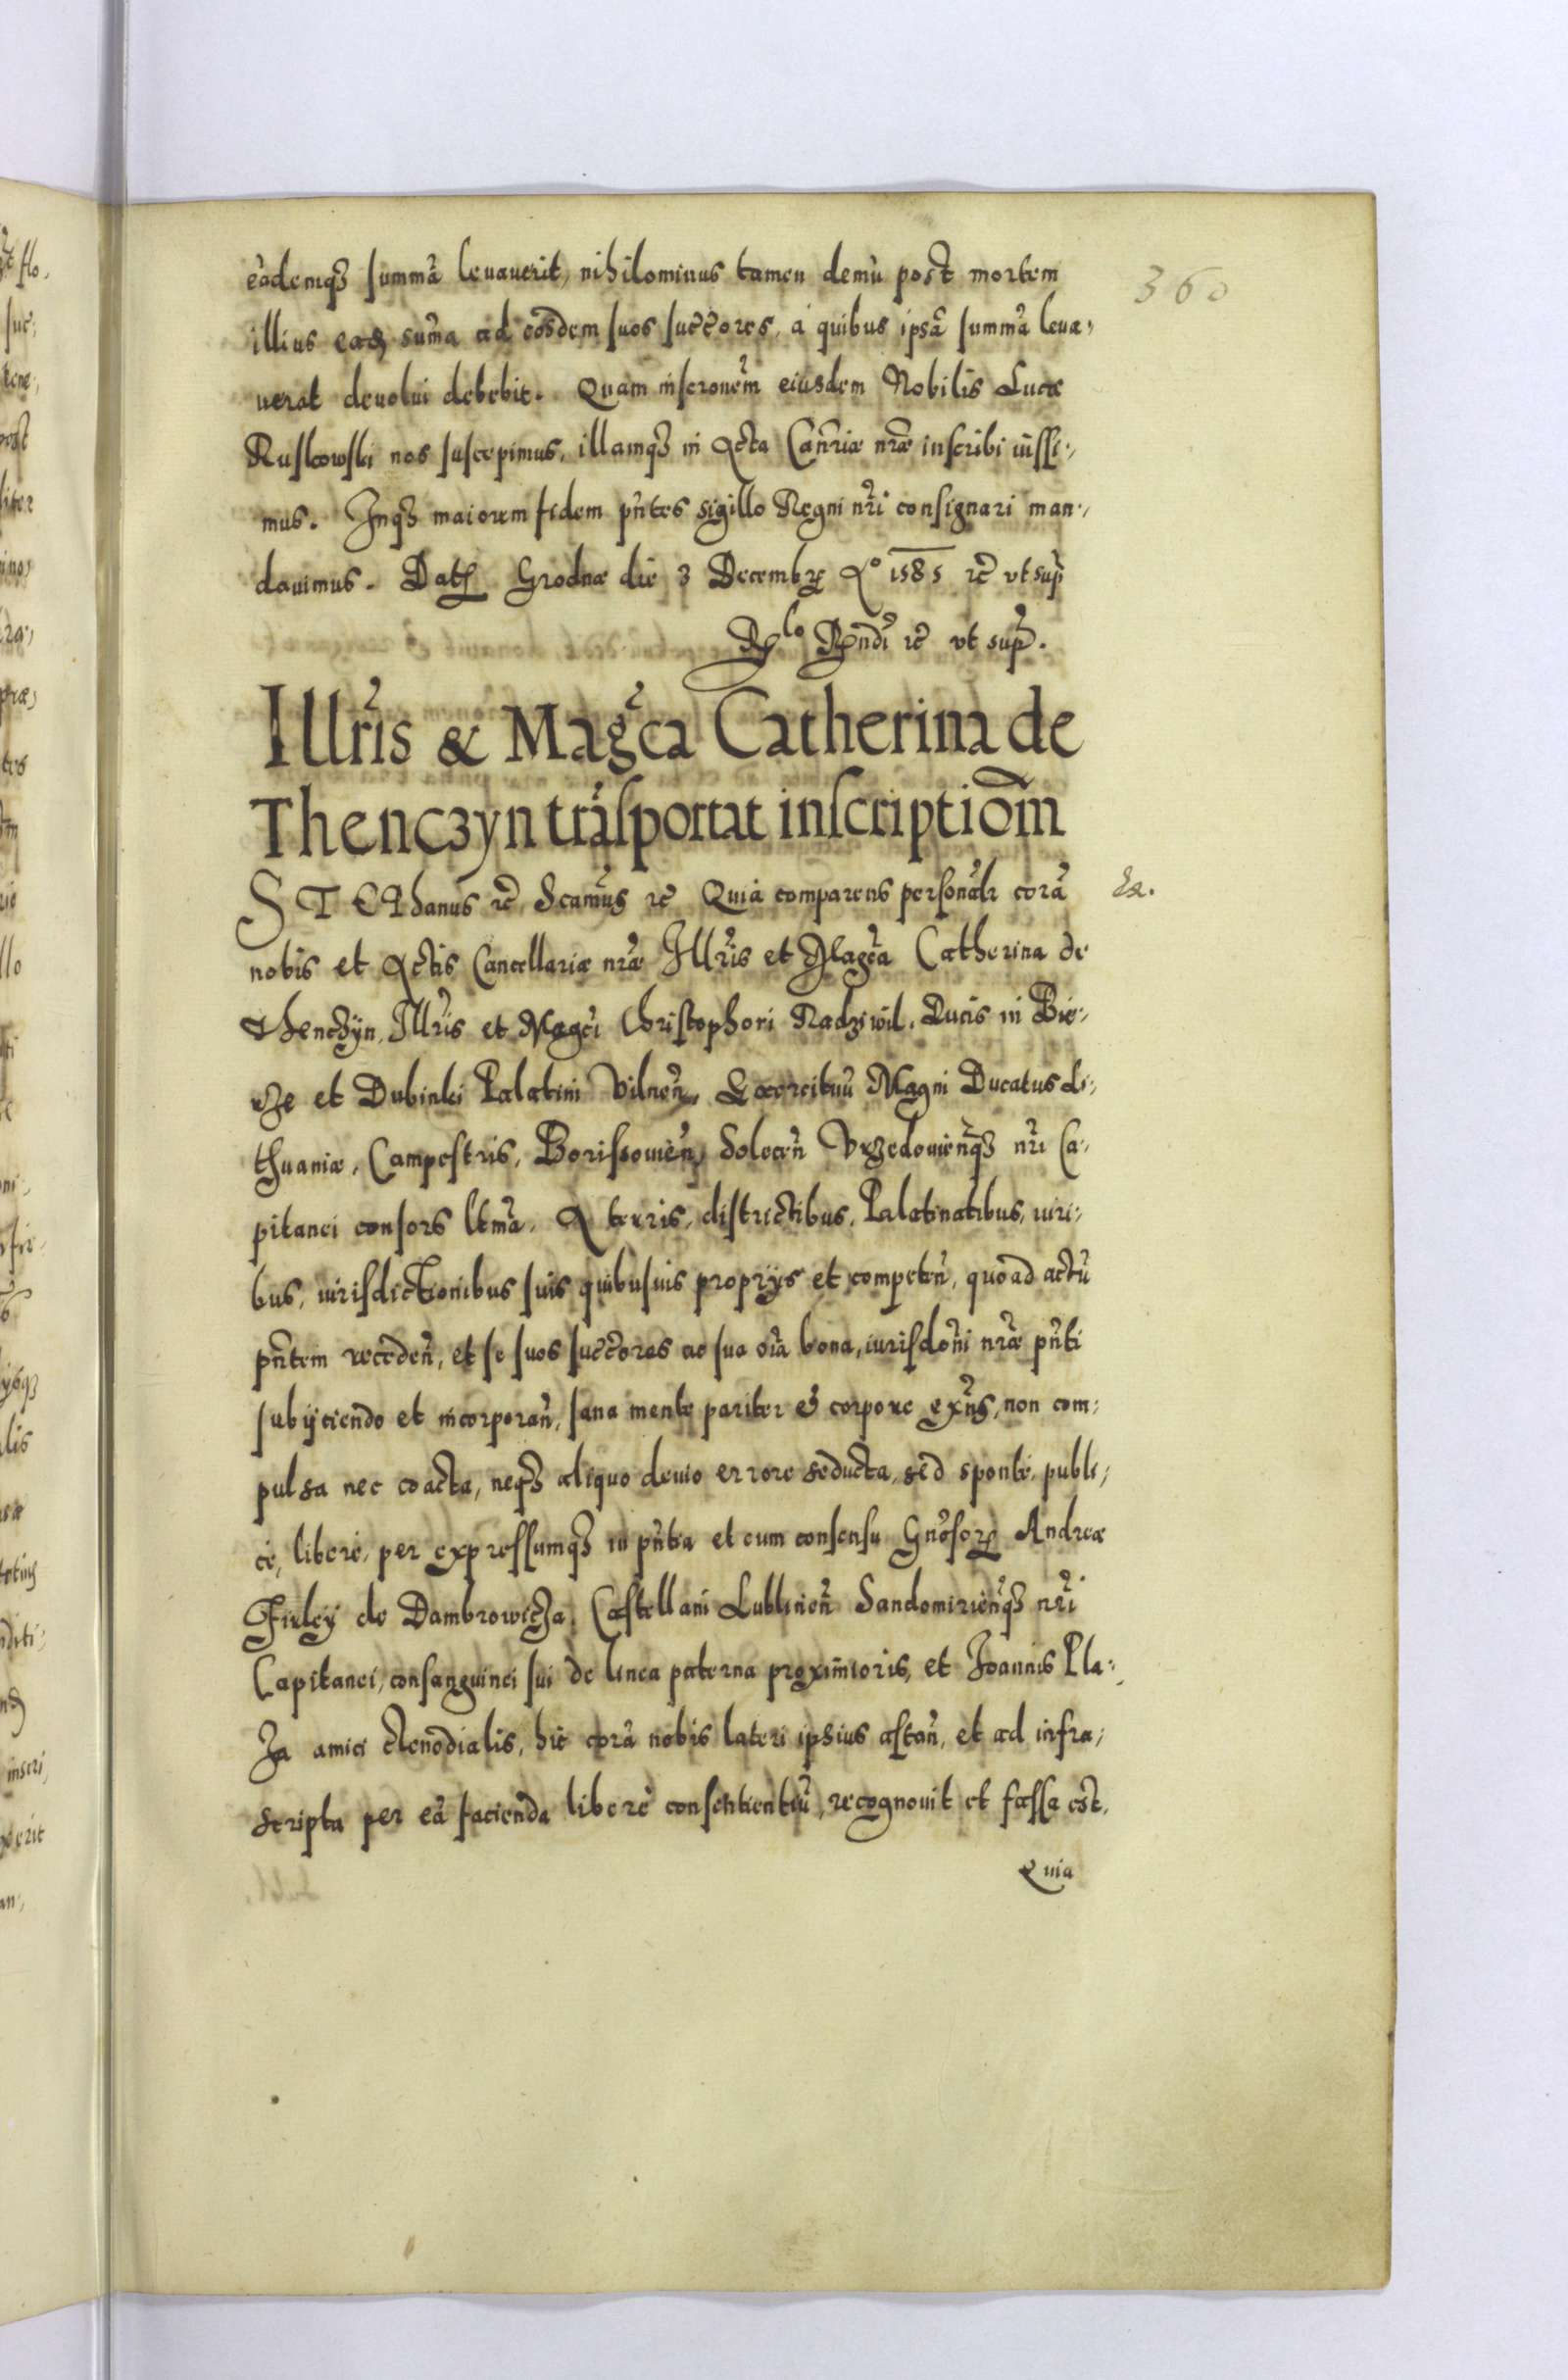 360
eademq₃ summā leuauerit, nihilominus tamen demū post mortem
illius eadē sum̄a ad eosdem suos succ̄ores, à quibus ipsā summā leua-
uerat deuolui debebit. Quam inscrōnem eiusdem Nobilis Lucæ
Ruskowski nos suscepimus, illamq₃ in Acta Canc̄riæ nr̄æ inscribi iussi-
mus. Inq₃ maiorem fidem pn̄tes sigillo Regni nr̄i consignari man-
dauimus. Dat̄ Grodnæ die 3 Decembr̄ Aº 1585 etc̄ vt sup̄
Rlo Rn̄di etc̄ vt sup̄.
Illrīs & Magc̄a Catherina de
Thenczyn trāsportat inscriptiōm
STEPhanus etc̄ Scamūs etc̄ Quia comparens personālr corā
nobis et Actis Cancellariæ nr̄æ Illrīs et Magc̄a Catherina de
Thenczÿn, Illrīs et Magc̄i Christophori Radziwil, Ducis in Bier-
ze et Dubinki Palatini Vilnen̄, Exercituū Magni Ducatus Li-
thuaniæ, Campestris, Borissouien̄, Solecen̄ Vrzedouien̄q₃ nr̄i Ca-
pitanei consors ltm̄a. A terris, districtibus, Palatinatibus, iuri-
bus, iurisdictionibus suis quibusuis proprijs et competen̄, quoad actū
pn̄tem receden̄, et se suos succ̄ores ac sua oīa bona, iurisdōni nr̄æ pn̄ti
subijciendo et incorporan̄, sana mente pariter et corpore exn̄s, non com-
pulsa nec coacta, neq₃ aliquo deuio errore seducta, sed sponte, publi-
cè, liberè, per expressumq₃ in pn̄tia et cum consensu Gn̄osor̄ Andreæ
Firleÿ de Dambrowicza, Castellani Lublinen̄ Sandomirien̄q₃ nr̄i
Capitanei, consanguinei sui de linea paterna proximioris, et Joannis Pla-
za amici clenodialis, hic corā nobis lateri ipsius astan̄, et ad infra-
scripta per eā facienda liberè consentientiū, recognouit et fassa est,
Quia